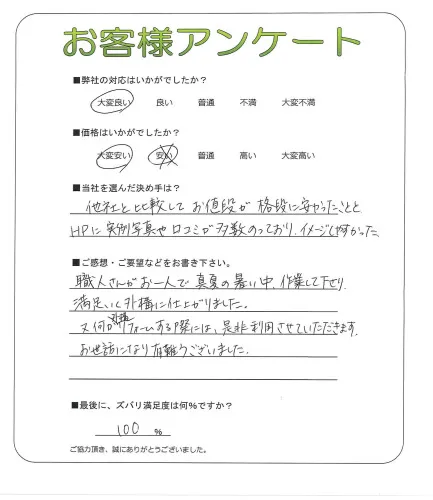 お客様アンケート
■弊社の対応はいかがでしたか?
大変良い 良い 普通 不満 大変不満
■価格はいかがでしたか?
大変安い 安い 普通 高い 大変高い
■当社を選んだ決め手は?
他社と比較してお値段が格段に安かったことと
HPに実例写真や口コミが多数のっており、イメージし易かった
■ご感想・ご要望などをお書き下さい。
職人さんがお一人で真夏の暑い中、作業して下さり
満足いく外構に仕上がりました。
又何か外構リフォームする際には、是非利用させていただきます。
お世話になり有難うございました。
■最後に、ズバリ満足度は何%ですか?
100 %
ご協力頂き、誠にありがとうございました。